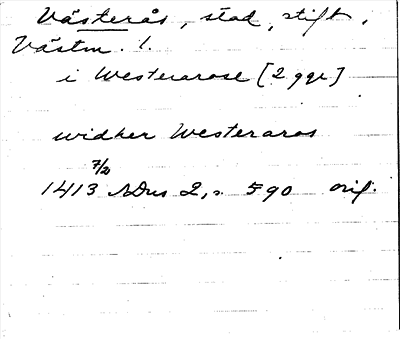 Västerås, stad, stift,
Västm. l.
i Westerarose [2 ggr]
widher Westeraros
7/2
1413 SDns 2, s. 590 orig.